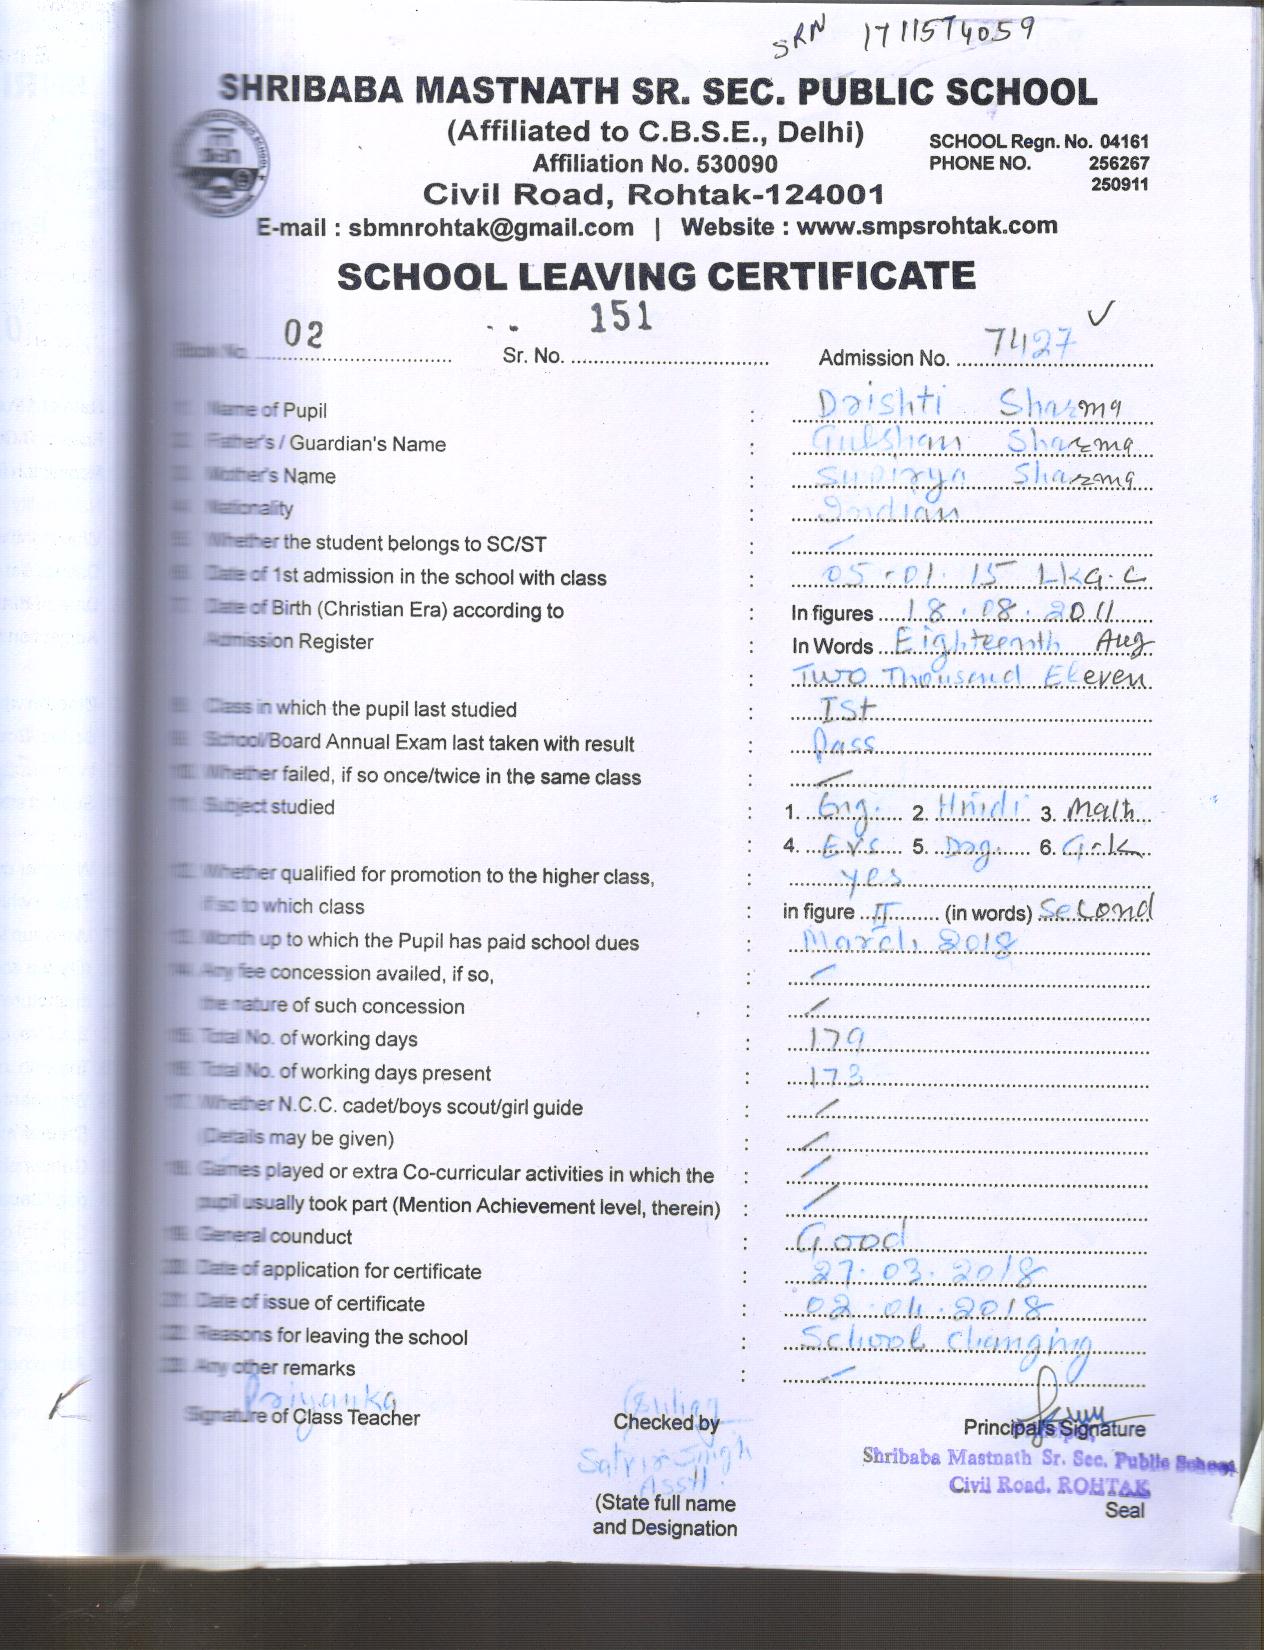 SRN 1711574059
SHRIBABA MASTNATH SR. SEC. PUBLIC SCHOOL
(Affiliated to C.B.S.E., Delhi)
SCHOOL Regn. No. 04161
Affiliation No. 530090
PHONE NO. 256267
250911
Civil Road, Rohtak-124001
E-mail : sbmnrohtak@gmail.com | Website : www.smpsrohtak.com
SCHOOL LEAVING CERTIFICATE
Book No. 02 Sr. No. 151 Admission No. 7427
1. Name of Pupil : Drishti Sharma
2. Father's / Guardian's Name : Gulshan Sharma
3. Mother's Name : Supirya Sharma
4. Nationality : Indian
5. Whether the student belongs to SC/ST :
6. Date of 1st admission in the school with class : 05.01.15 LKG.C
7. Date of Birth (Christian Era) according to : In figures 18.08.2011
Admission Register : In Words Eighteenth Aug
: Two Thousand Eleven
8. Class in which the pupil last studied : Ist
9. School/Board Annual Exam last taken with result : Pass
10. Whether failed, if so once/twice in the same class :
11. Subject studied : 1. Eng. 2. Hindi 3. Math
: 4. Evs 5. Drg. 6. G.k
12. Whether qualified for promotion to the higher class, : yes
if so to which class : in figure II (in words) Second
13. Month up to which the Pupil has paid school dues : March 2018
14. Any fee concession availed, if so, :
the nature of such concession :
15. Total No. of working days : 179
16. Total No. of working days present : 173
17. Whether N.C.C. cadet/boys scout/girl guide :
(Details may be given) :
18. Games played or extra Co-curricular activities in which the :
pupil usually took part (Mention Achievement level, therein) :
19. General counduct : Good
20. Date of application for certificate : 27.03.2018
21. Date of issue of certificate : 02.04.2018
22. Reasons for leaving the school : School Changing
23. Any other remarks :
Priyanka
Signature of Class Teacher Checked by Principal's Signature
Satvir Singh
Asstt.
Shribaba Mastnath Sr. Sec. Public School
Civil Road, ROHTAK
(State full name Seal
and Designation